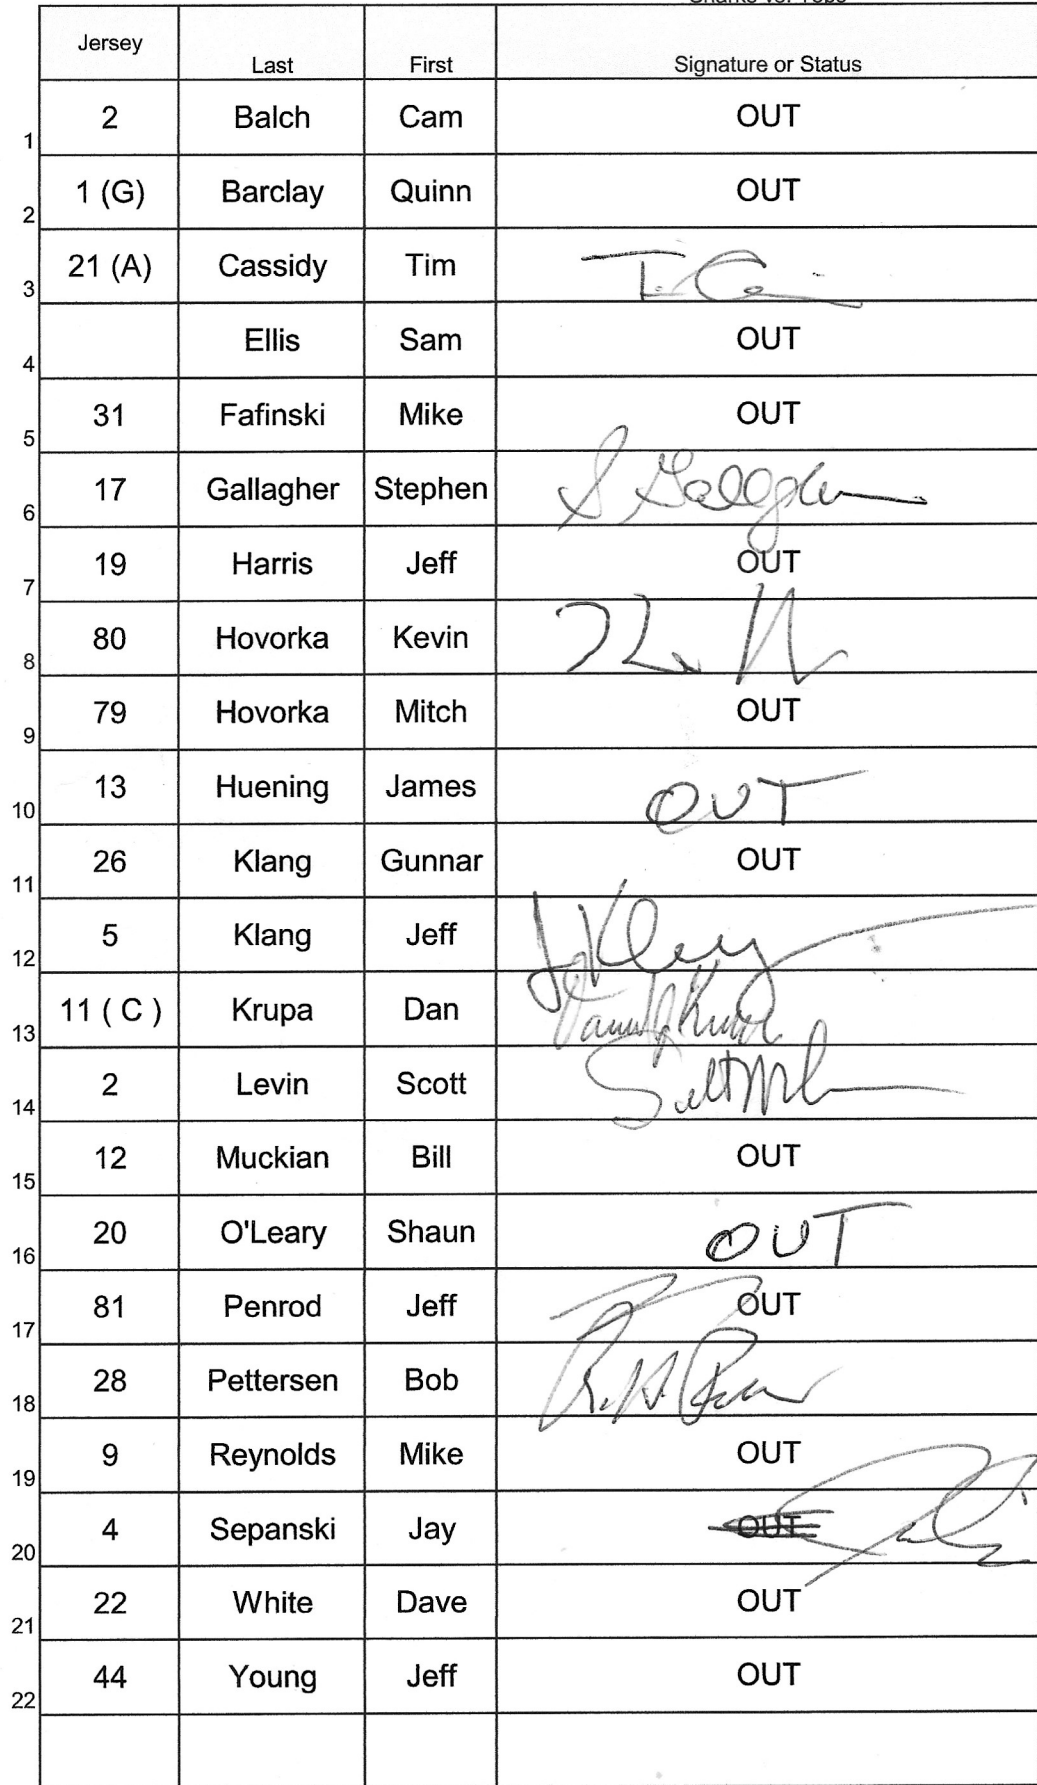 Jersey Last First Signature or Status
1 2 Balch Cam OUT
2 1 (G) Barclay Quinn OUT
3 21 (A) Cassidy Tim
4 Ellis Sam OUT
5 31 Fafinski Mike OUT
6 17 Gallagher Stephen S Gallagher
7 19 Harris Jeff OUT
8 80 Hovorka Kevin
9 79 Hovorka Mitch OUT
10 13 Huening James OUT
11 26 Klang Gunnar OUT
12 5 Klang Jeff
13 11 ( C ) Krupa Dan
14 2 Levin Scott
15 12 Muckian Bill OUT
16 20 O'Leary Shaun OUT
17 81 Penrod Jeff OUT
18 28 Pettersen Bob
19 9 Reynolds Mike OUT
20 4 Sepanski Jay OUT
21 22 White Dave OUT
22 44 Young Jeff OUT